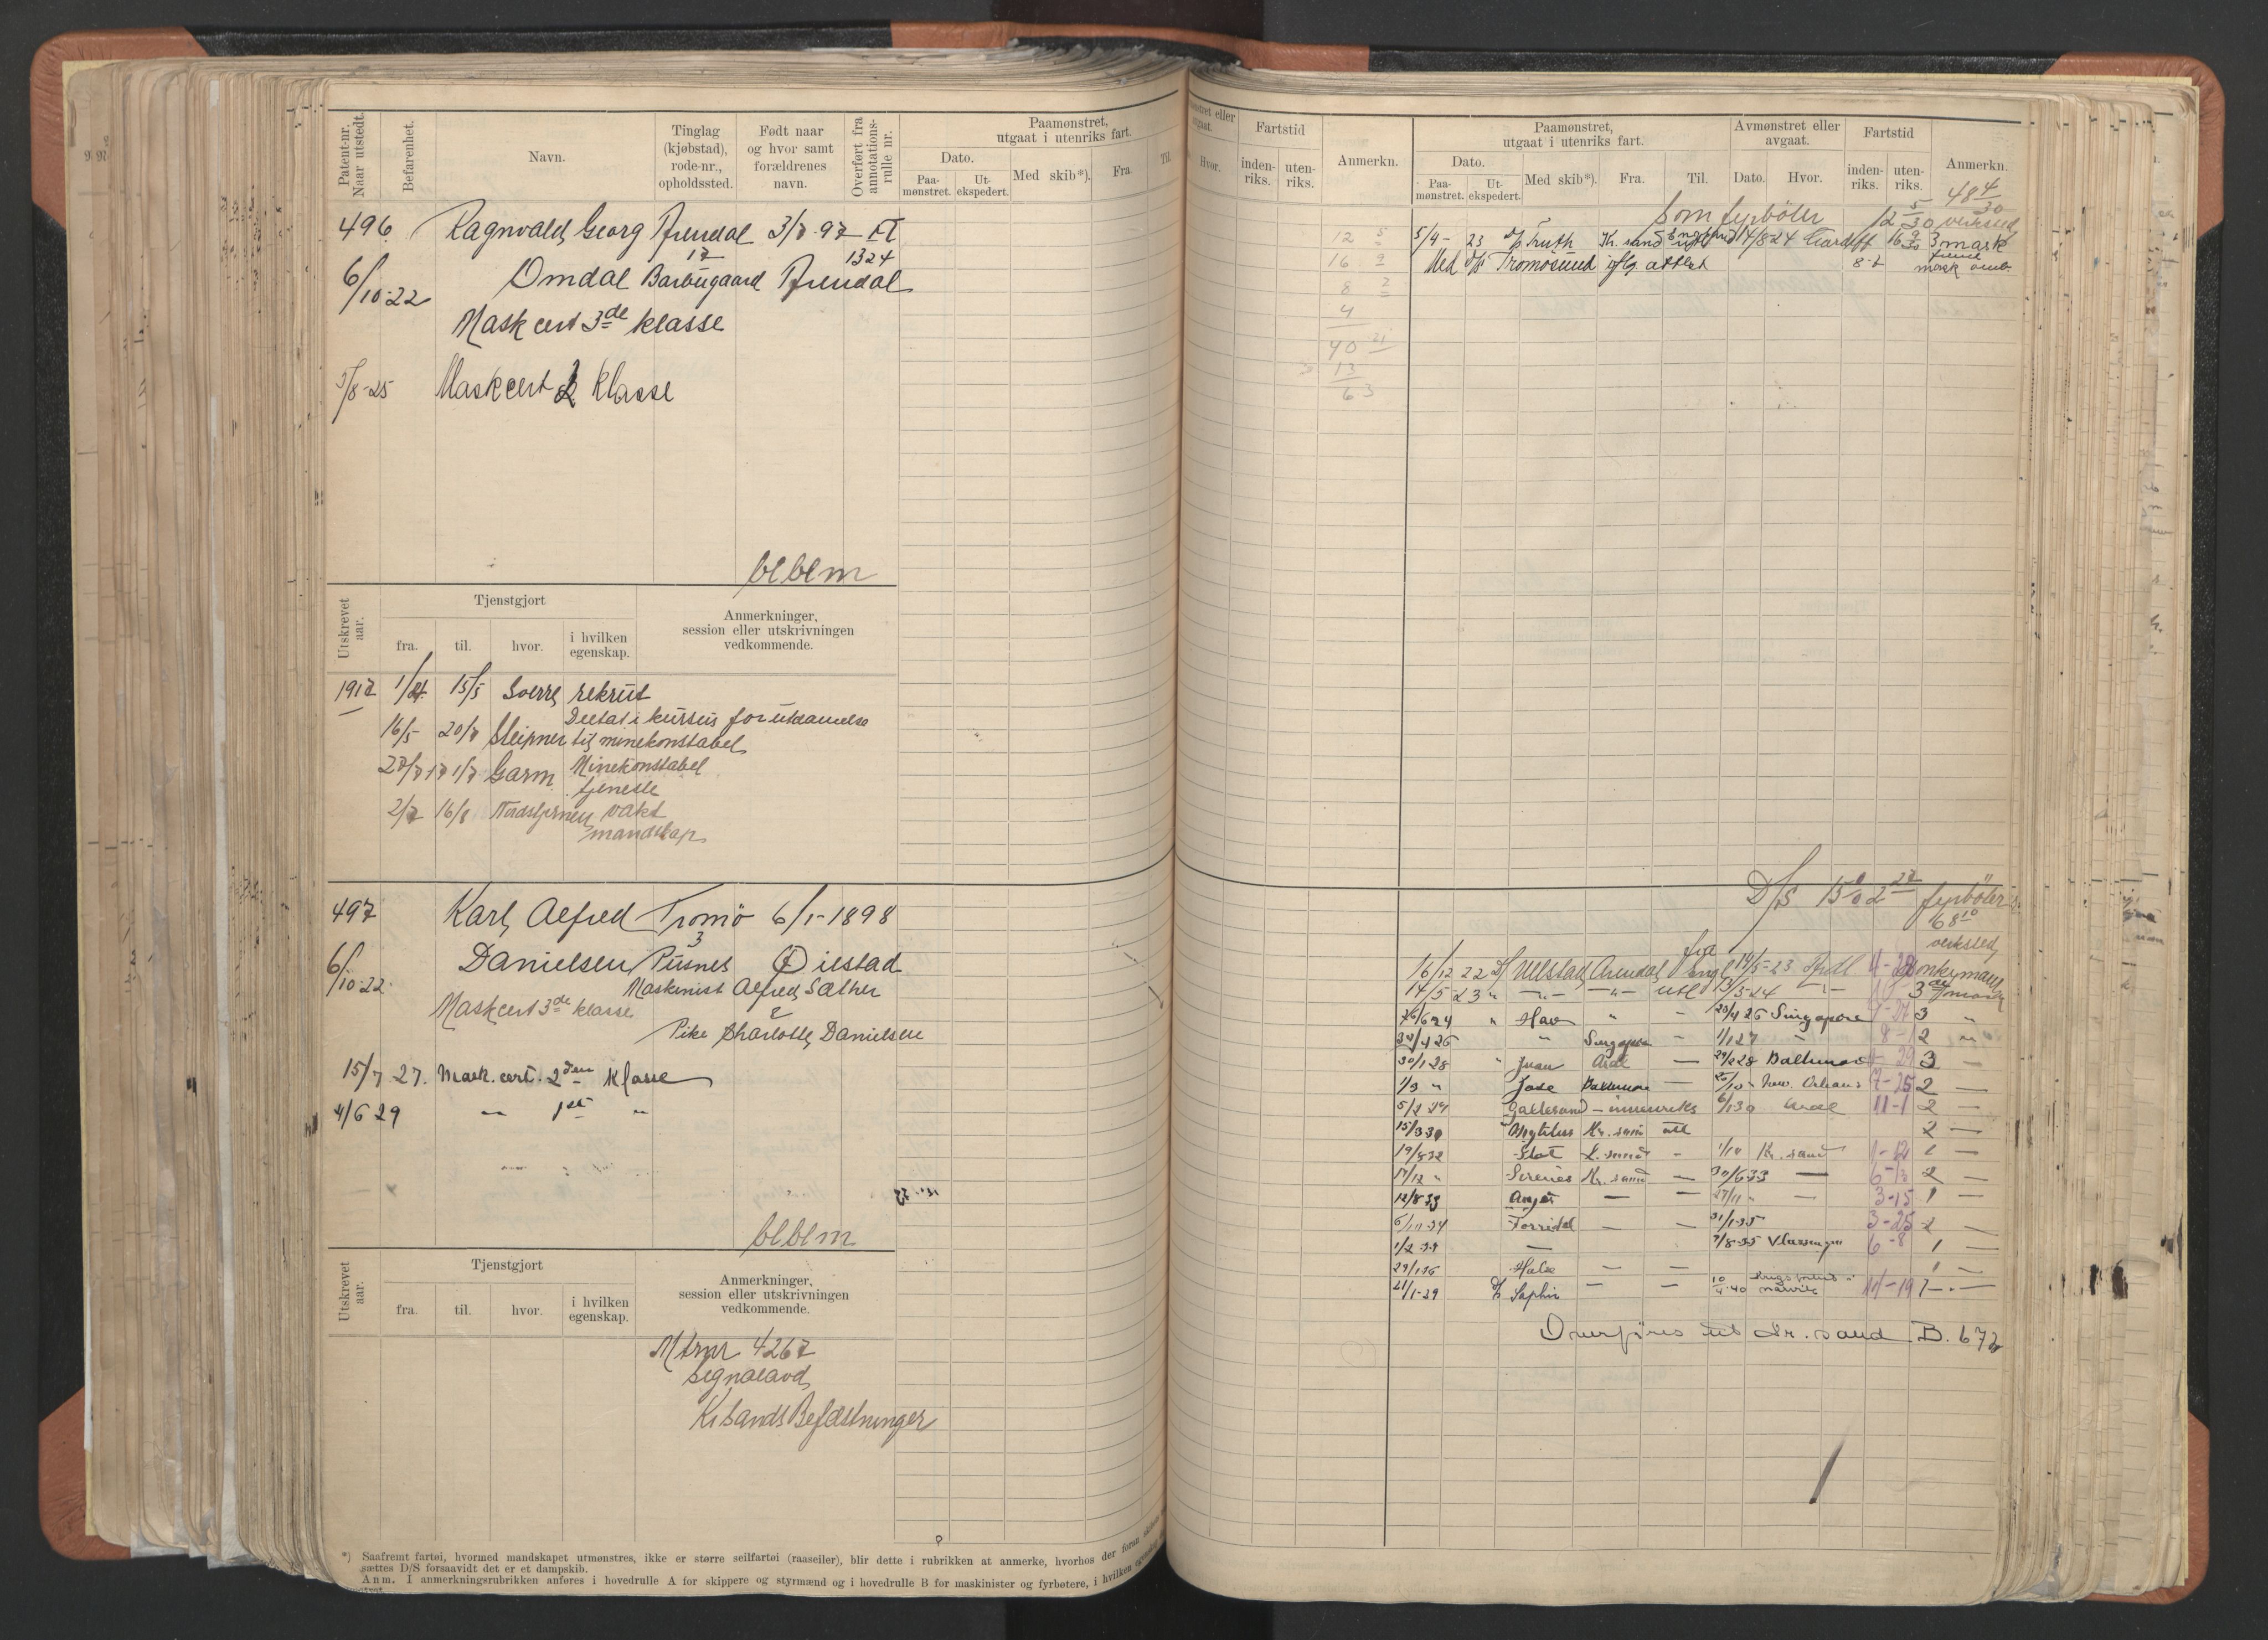 Patent-nr. Naar utstedt.
Befarenhet.
Navn.
Tinglag (kjøbstad), rode-nr., opholdssted.
Født naar og hvor samt forældrenes navn.
Overført fra annotations-rulle nr.
Paamønstret, utgaat i utenriks fart.
Dato.
Paa-mønstret.
Ut-ekspedert.
Med skib*).
Fra
Til.
496 Ragnvald Georg Arendal 3/7-97 A
17 1324
6/10-22 Omdal Barbugaard Arendal
Mask cert 3de klasse
5/8-25 Mask cert 2 Klasse
bebem
Utskrevet aar.
Tjenstgjort
fra. til. hvor. i hvilken egenskap.
Anmerkninger, session eller utskrivningen vedkommende.
1917 15/5 Sverre rekrut
Deltat i kursus for utdannelse
16/5 20/7 Sleipner til minekonstabel
Garm Minekonstabel
tjeneste
2/7 16/8 Nordstjernen vakt
mandskap
497 Karl Alfred Tromø 6/1-1898
3
6/10-22 Danielsen Pusnes Øiestad
Maskinist Alfred Sæther
Mask cert 3de klasse &
Pike Charlotte Danielsen
15/7 27. Mask. cert. 2den Klasse
4/6 29 — 1ste "
bebem
Utskrevet aar.
Tjenstgjort
fra. til. hvor. i hvilken egenskap.
Anmerkninger, session eller utskrivningen vedkommende.
Mtrnr 4267
Signalavd
Kr sands Befæstninger
*) Saafremt fartøi, hvormed mandskapet utmønstres, ikke er større seilfartøi (raaseiler), blir dette i rubrikken at anmerke, hvorhos der foran skibets
sættes D/S forsaavidt det er et dampskib.
Anm. I anmerkningsrubrikken anføres i hovedrulle A for skippere og styrmænd og i hovedrulle B for maskinister og fyrbøtere, i hvilken
Hvor.
Fartstid
inden-riks. uten-riks.
Anmerkn.
Paamønstret, utgaat i utenriks fart.
Dato.
Paa-mønstret. Ut-ekspedert.
Med skib*). Fra. Til.
Avmønstret eller avgaat.
Dato. Hvor.
Fartstid
inden-riks. uten-riks.
Anmerkn.
12 5
16 9
8 2
4
40 21
13
63
48 4/30
Som fyrbøter 12 5/30 verksted
5/4-23 D/S Truth Kr. sand England 14/8 24 Cardiff 16 9/30 3 mask
Med D/S Tromøsund iflg attest 8-2
D/S 27 fyrbøter
68 10
verksted
16/12 22 D/S Ullstad Arendal Engl 14/5-23 Ardl Donkeymand
14/5-23 " utl 13/5-24 3de mask
" Hav " 20/4 26 Singapore 3 "
" Singapore 1/1 27 8-1 2 "
30/1 28 " Juan Ardl — 29/2 28 Baltimore 3 —
1/3 " Jose Baltimore — New Orleans 7-25 2 —
5/2 29 Galtesund — innenriks 6/1 30 Ardl 11-1 2 —
15/3 30 Mytilus Kr. sand utl 2 —
19/8 32 1/10 Kr. sand
17/12 " Sirenes Kr. sand — 30/6 33 — 2 —
12/8 33 — — 27/11 " — 3-15 1 —
6/10 34 Torridal — — 31/1-35 3-25 2 —
— 7/8-35 Vlissingen 6-8 1 —
29/1 36 — — 1 —
21/1-39 D/S Saphir — — 10/4-40 Krigsforlis Narvik
Overføres til Kr. sand B. 672